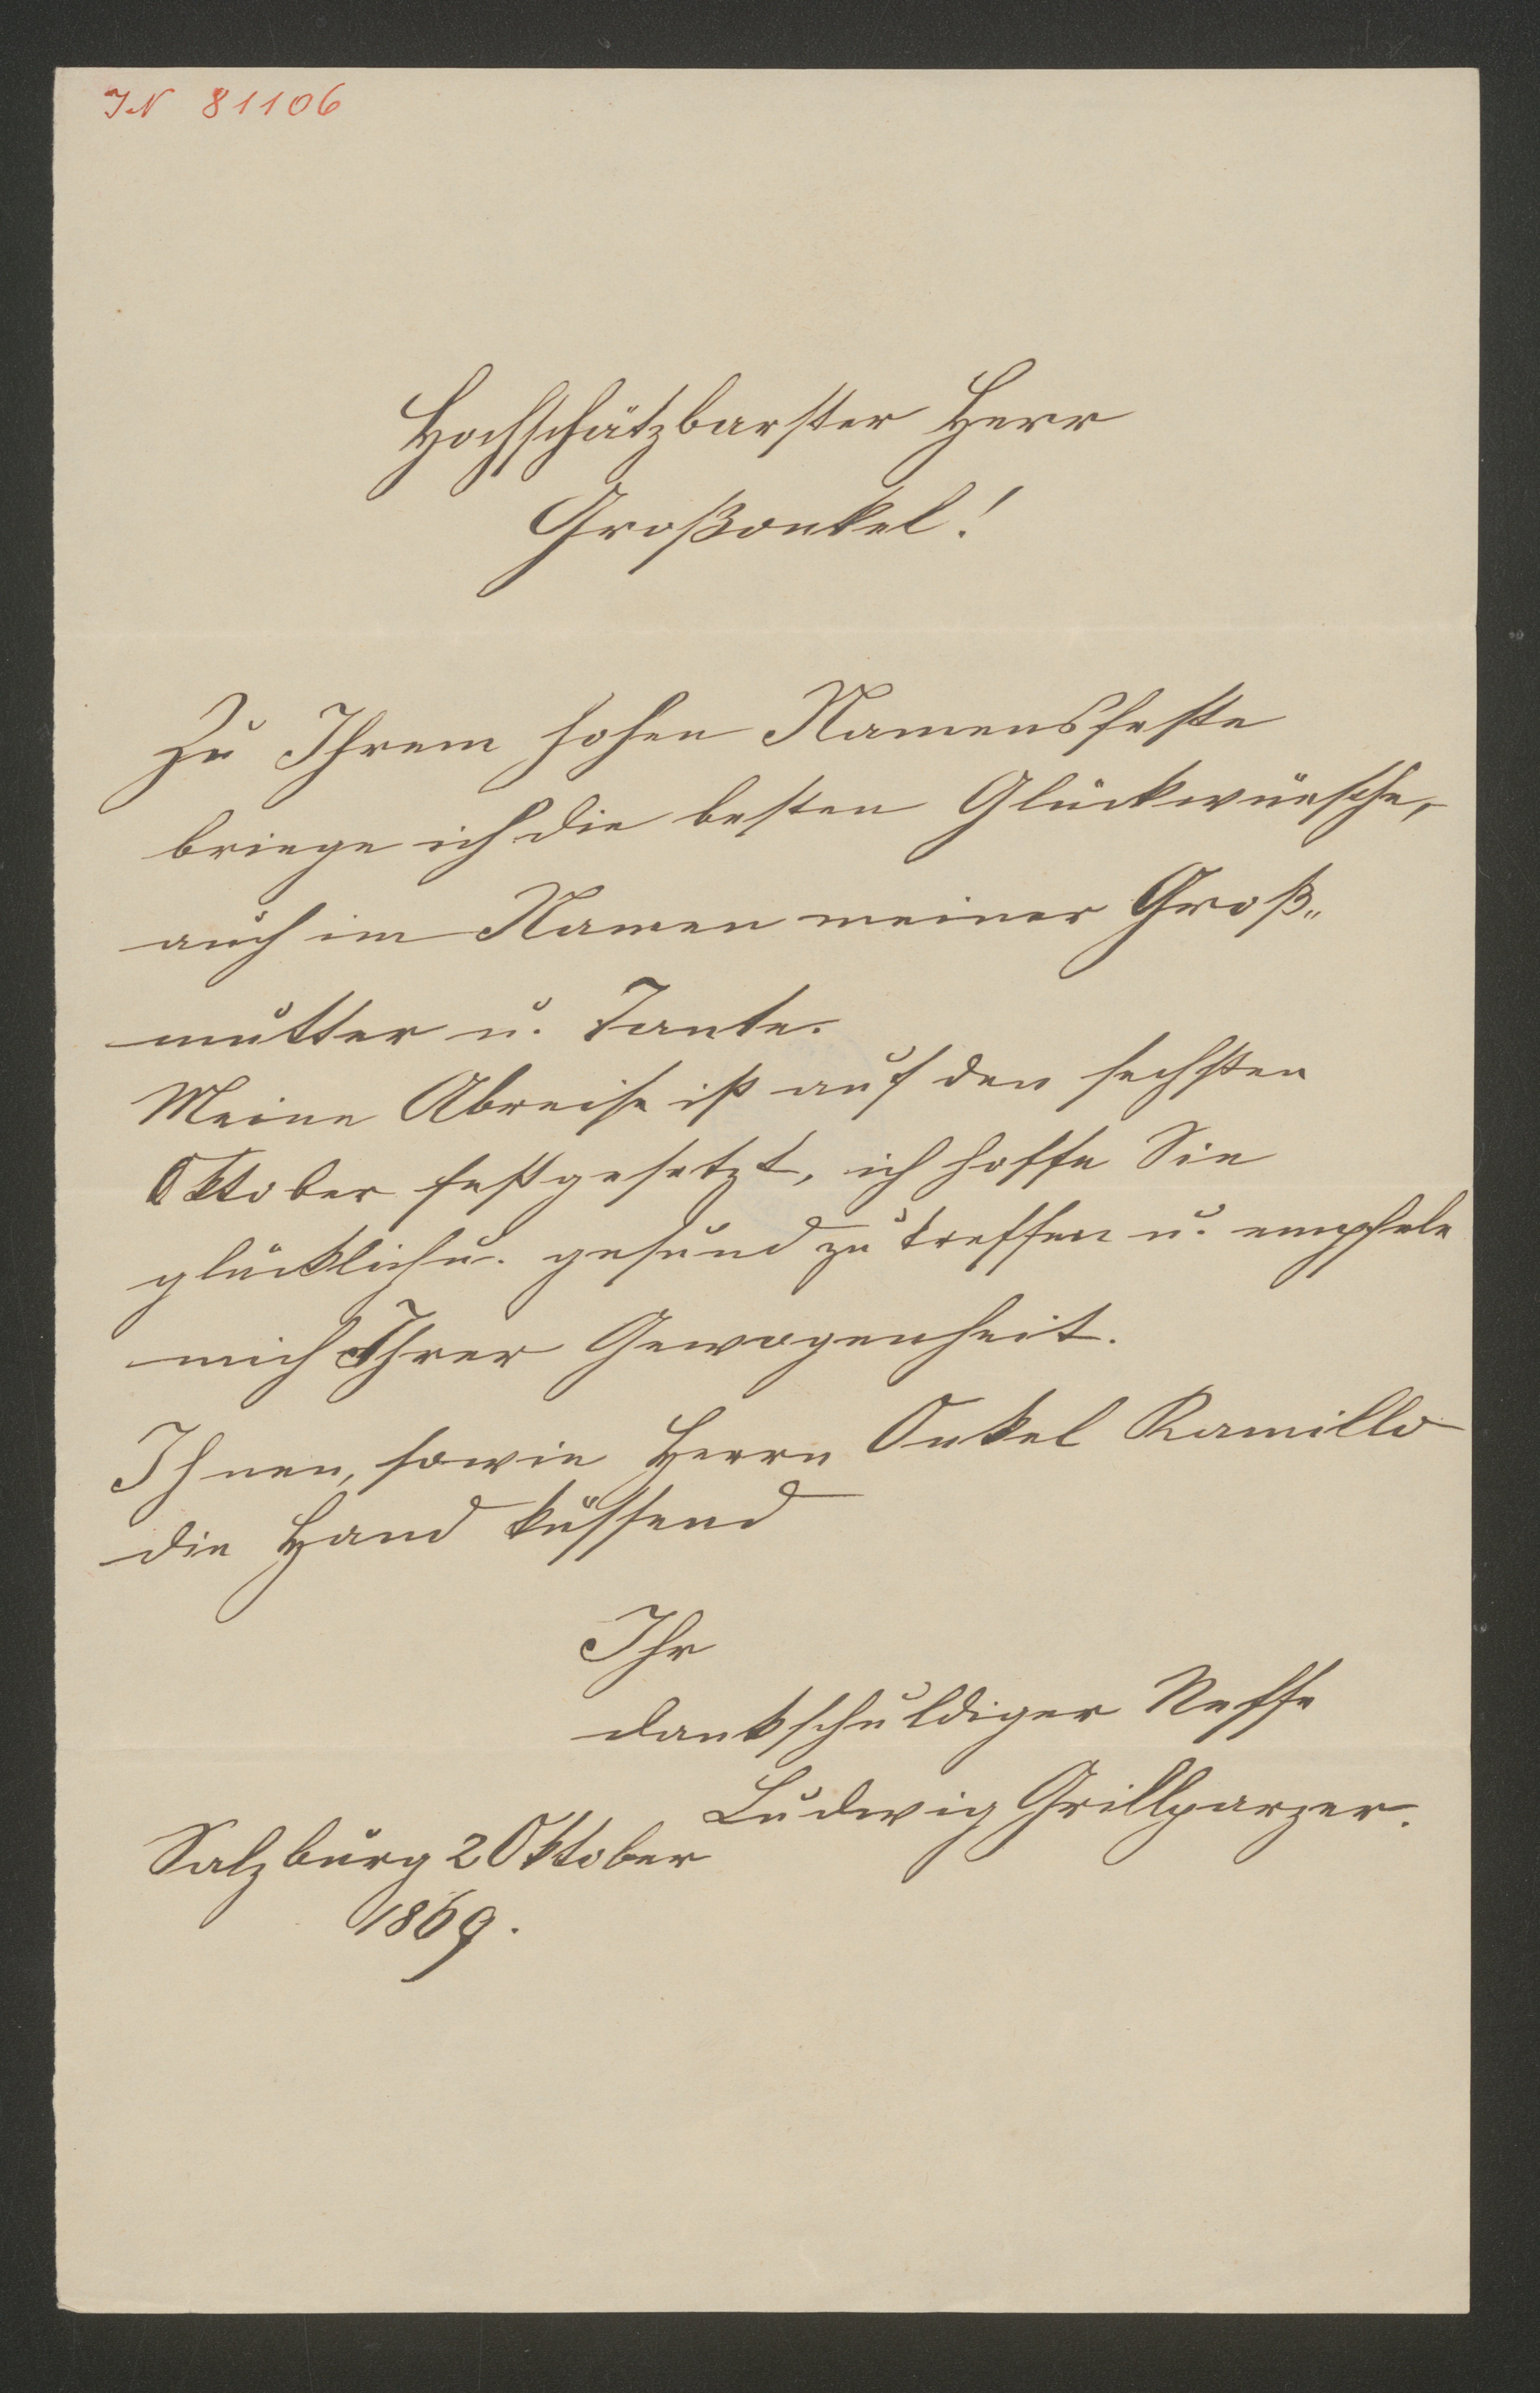 IN 81106
Hochschätzbarster Herr
Großonkel!
Zu Ihrem hohen Namensfeste
bringe ich die besten Glückwünsche,
auch im Namen meiner Groß„
mutter u. Tante.
Meine Abreise ist auf den sechsten
Oktober festgesetzt, ich hoffe Sie
glücklich u. gesund zu treffen u. empfele
mich Ihrer Gewogenheit.
Ihnen, sowie Herrn Onkel Kamillo
die Hand küssend
Ihr
dankschuldiger Neffe
Ludwig Grillparzer.
Salzburg 2 Oktober
1869.